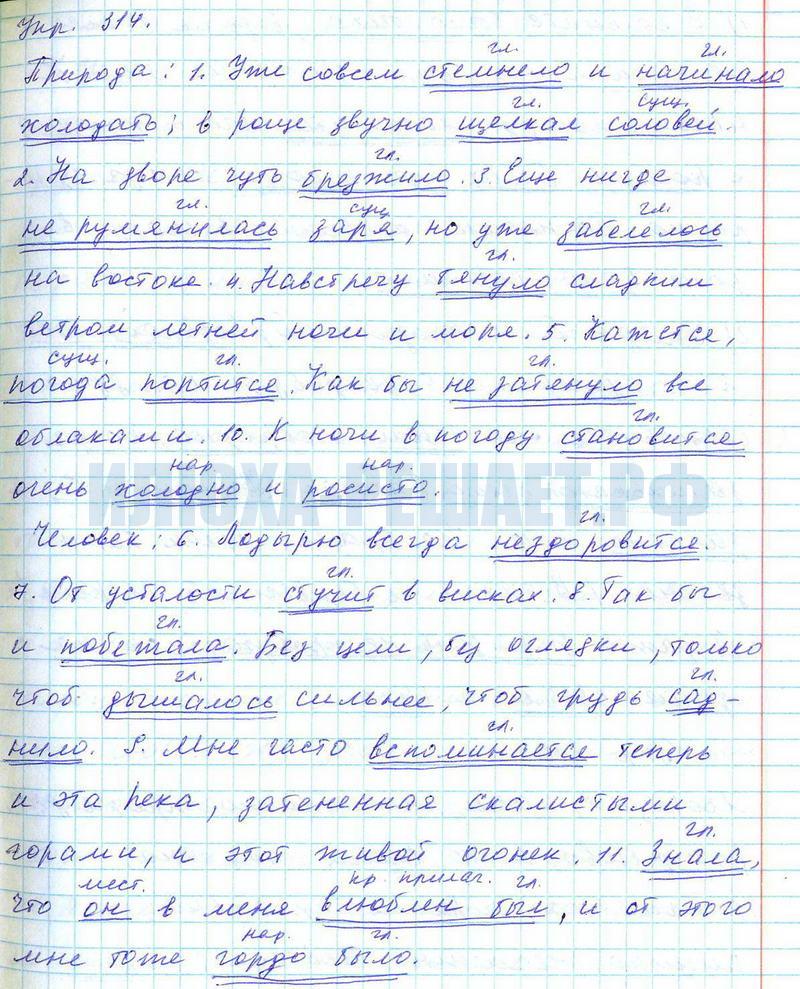 Упр. 314.
гл. гл.
Природа: 1. Уже совсем стемнело и начинало
гл. сущ.
холодать; в роще звучно щелкал соловей.
гл.
2. На дворе чуть брезжило. 3. Еще нигде
гл. сущ гл.
не румянилась заря, но уже забелелось
гл.
на востоке. 4. Навстречу тянуло сладким
ветром летней ночи и моря. 5. Кажется,
сущ. гл. гл.
погода портится. Как бы не затянуло все
гл.
облаками. 10. К ночи в погоду становится
нар. нар.
очень холодно и росисто.
ИЗ ПОХА РЕШАЕТ.РФ
гл.
Человек: 6. Лодырю всегда нездоровится.
гл.
7. От усталости стучит в висках. 8. Так бы
гл.
и побежала. Без цели, без оглядки, только
гл. гл.
чтоб дышалось сильнее, чтоб грудь сад-
гл.
нило. 9. Мне часто вспоминается теперь
и эта река, затененная скалистыми
гл.
горами, и этот живой огонек. 11. Знала,
мест. кр прилаг. гл.
что он в меня влюблен был, и от этого
нар. гл.
мне тоже гордо было.